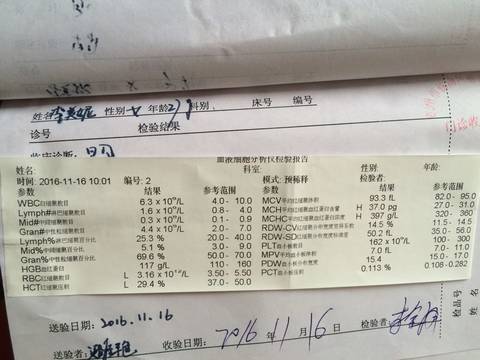 姓名 性别 女 年龄 29 科别 床号 编号
诊号 检验结果
临床诊断:
血液细胞分析仪检验报告
姓名: 科室: 性别: 年龄:
时间: 2016-11-16 10:01 编号: 2 模式: 预稀释 检验者:
结果 参考范围 结果 参考范围
WBC白细胞数目 6.3 x 10⁹/L 4.0 - 10.0 MCV平均红细胞体积 93.3 fL 82.0 - 95.0
Lymph#淋巴细胞数目 1.6 x 10⁹/L 0.8 - 4.0 MCH平均红细胞血红蛋白含量 H 37.0 pg 27.0 - 31.0
Mid#中间细胞数目 0.3 x 10⁹/L 0.1 - 0.9 MCHC平均红细胞血红蛋白浓度 H 397 g/L 320 - 360
Gran#中性粒细胞数目 4.4 x 10⁹/L 2.0 - 7.0 RDW-CV红细胞分布宽度变异系数 14.5 % 11.5 - 14.5
Lymph%淋巴细胞百分比 25.3 % 20.0 - 40.0 RDW-SD红细胞分布宽度标准差 50.2 fL 35.0 - 56.0
Mid%中间细胞百分比 5.1 % 3.0 - 9.0 PLT血小板数目 162 x 10⁹/L 100 - 300
Gran%中性粒细胞百分比 69.6 % 50.0 - 70.0 MPV平均血小板体积 7.0 fL 7.0 - 11.0
HGB血红蛋白 117 g/L 110 - 160 PDW血小板分布宽度 15.4 15.0 - 17.0
RBC红细胞数目 L 3.16 x 10¹²/L 3.50 - 5.50 PCT血小板压积 0.113 % 0.108 - 0.282
HCT红细胞压积 L 29.4 % 37.0 - 50.0
送验日期: 2016.11.16 2016年11月16日 检验者:
送验者: 收验日期:
检品号
姓名